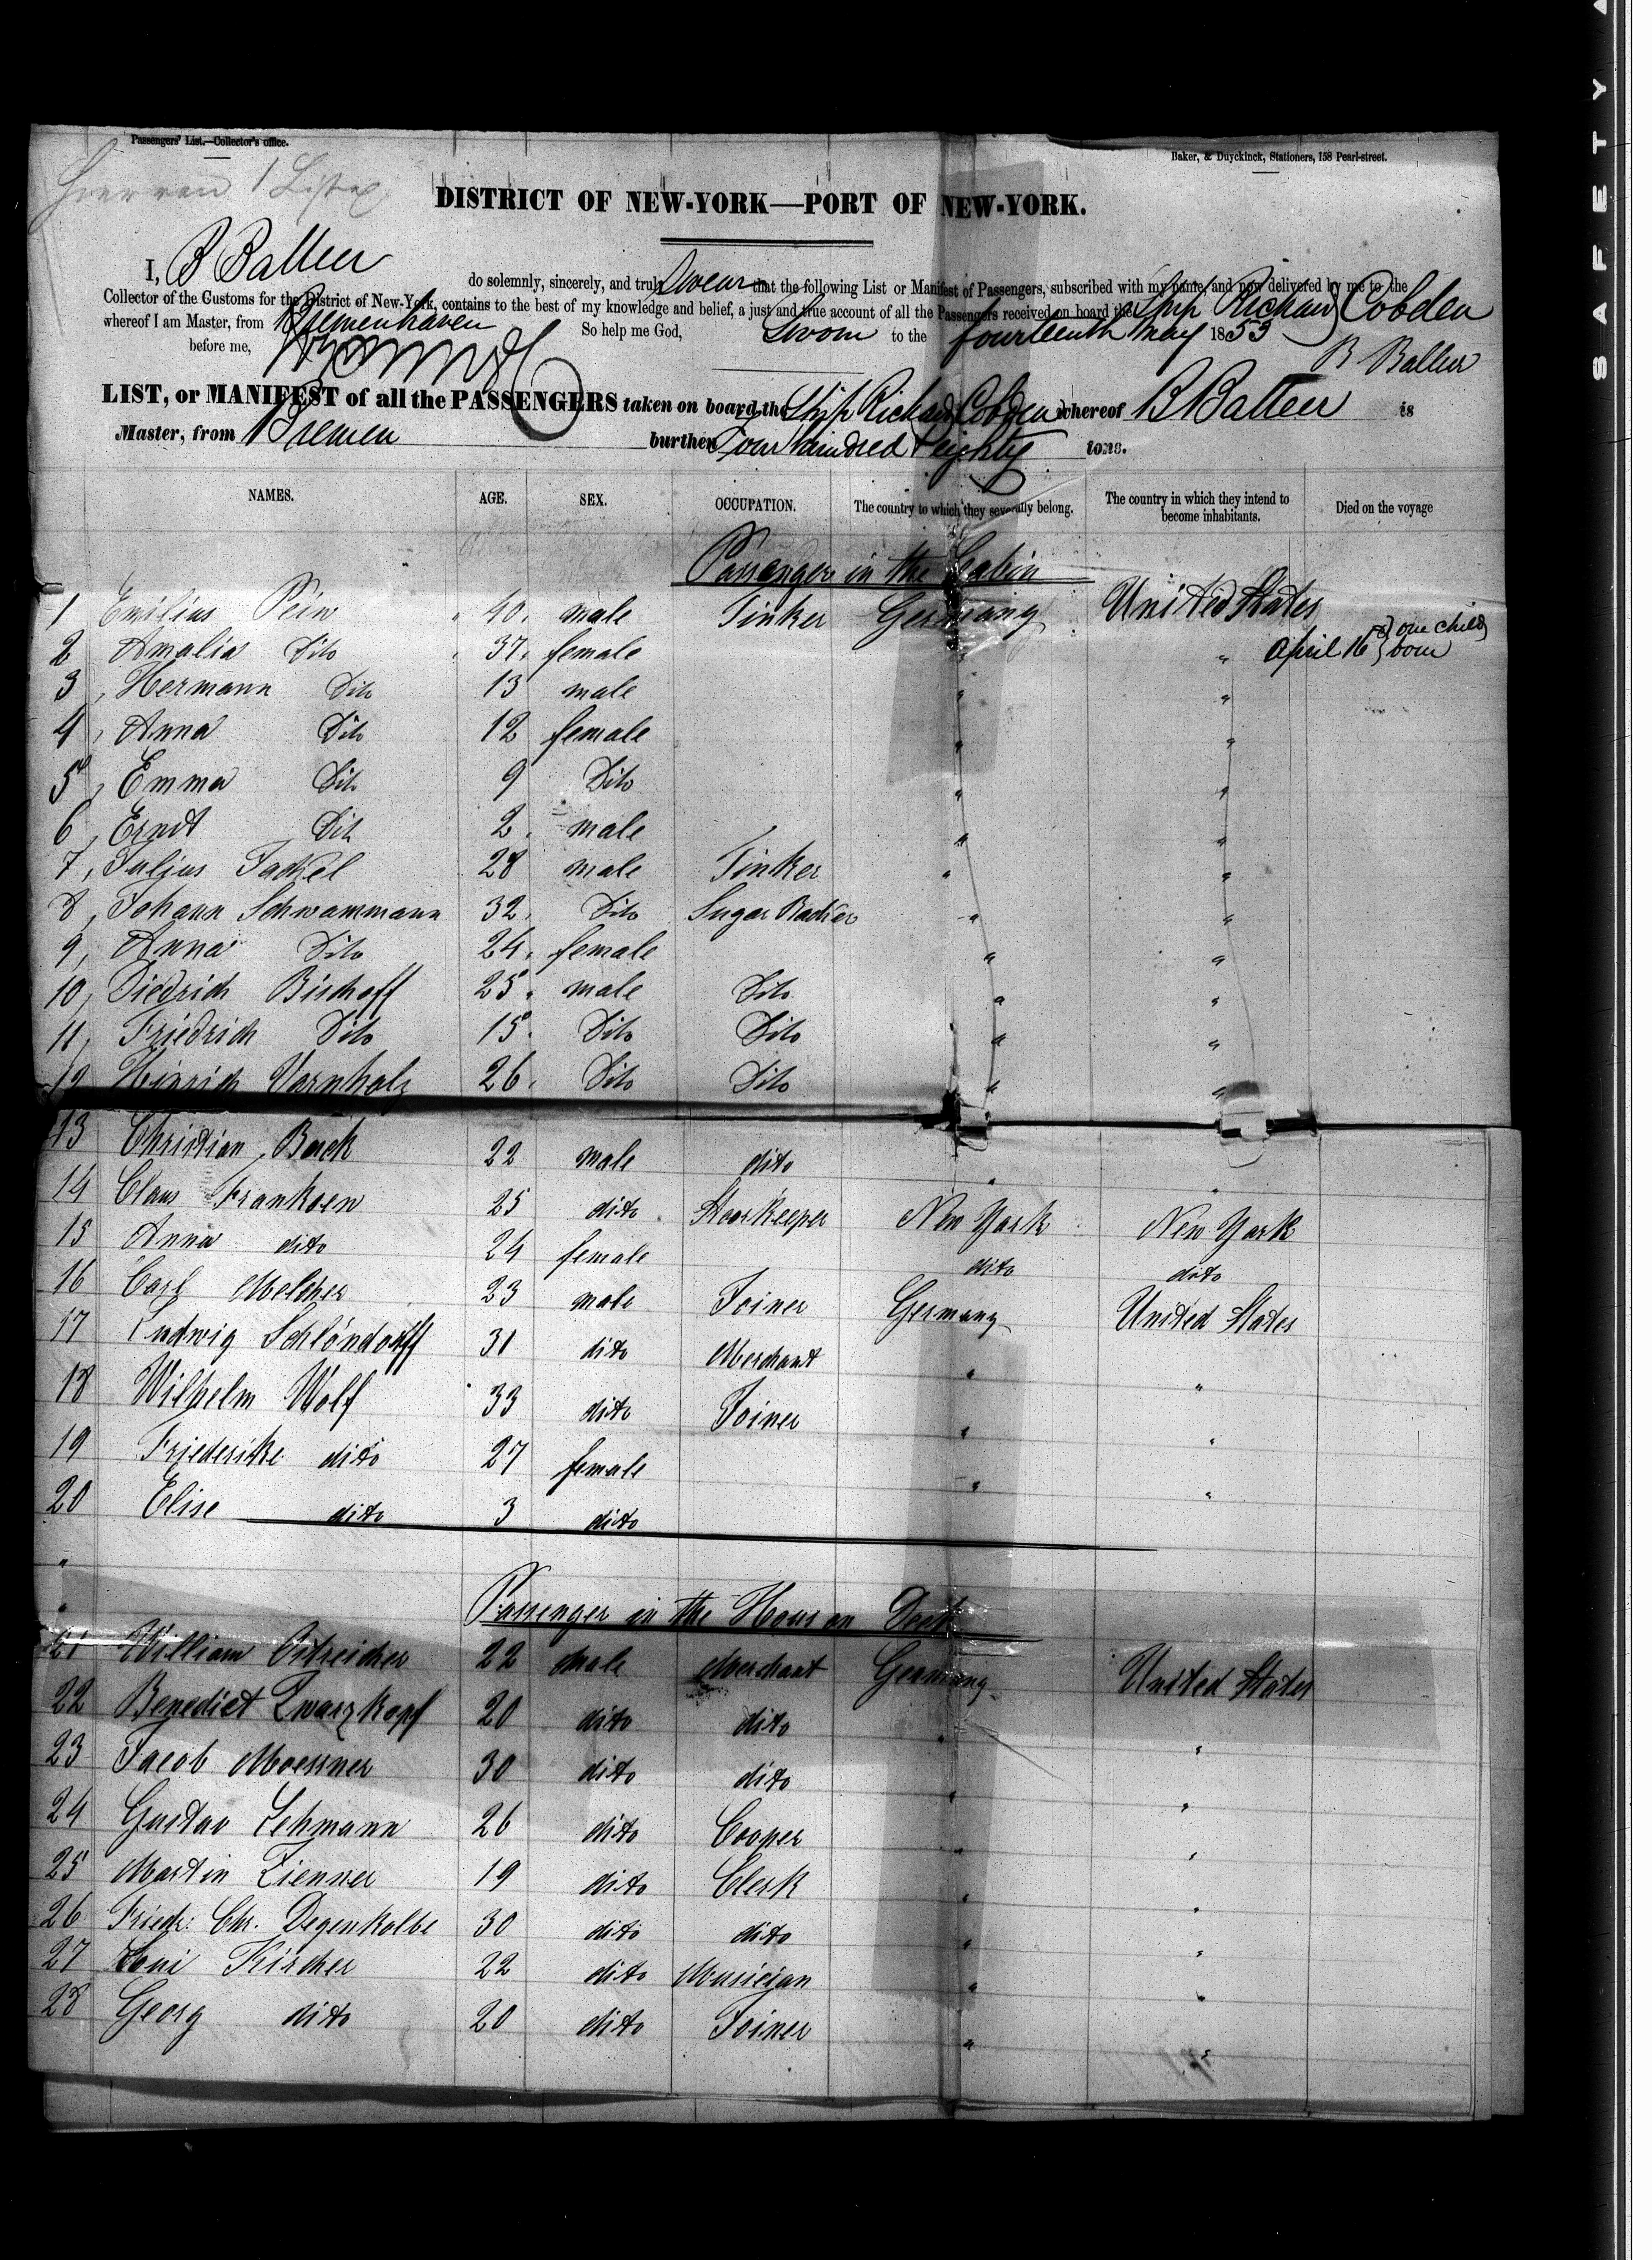 Passengers' List.—Collector's office.
Baker, & Duyckinck, Stationers, 158 Pearl-street.
DISTRICT OF NEW-YORK—PORT OF NEW-YORK.
I, B Balleer do solemnly, sincerely, and truly Swear that the following List or Manifest of Passengers, subscribed with my name, and now delivered by me to the
Collector of the Customs for the District of New-York, contains to the best of my knowledge and belief, a just and true account of all the Passengers received on board the Ship Richard Cobden
whereof I am Master, from Bremenhaven So help me God, Sworn to the fourteenth May 1853
before me, B Balleer
LIST, or MANIFEST of all the PASSENGERS taken on board the Ship Richard Cobden whereof B Balleer is
Master, from Bremen burthen Four hundred & eighty tons.
NAMES. AGE. SEX. OCCUPATION. The country to which they severally belong. The country in which they intend to become inhabitants. Died on the voyage
Passenger in the Cabin
1 Emilius Pein 40 male Tinker Germany United States
2 Amalia Dito 37 female " " April 16 one child born
3 Hermann Dito 13 male " "
4 Anna Dito 12 female " "
5 Emma Dito 9 Dito " "
6 Erndt Dito 2 male " "
7 Julius Jackel 28 male Tinker " "
8 Johann Schwammann 32 Dito Sugar Backer " "
9 Anna Dito 24 female " "
10 Diedrich Bischoff 25 male Dito " "
11 Friedrich Dito 15 Dito Dito " "
12 Hinrich Varnholz 26 Dito Dito " "
13 Christian Back 22 male dito " "
14 Claus Franksen 25 dito Stoorkeeper New York New York
15 Anna dito 24 female dito dito
16 Carl Melcher 23 male Joiner Germany United States
17 Ludwig Schlöndorff 31 dito Merchant " "
18 Wilhelm Wolf 33 dito Joiner " "
19 Friederike dito 27 female " "
20 Elise dito 3 dito
"
"
Passenger in the Hous on Deck
21 William Ostreicher 22 male Merchant Germany United States
22 Benedict Zwarzkopf 20 dito dito " "
23 Jacob Moessner 30 dito dito " "
24 Gustav Lehmann 26 dito Cooper " "
25 Martin Zienner 19 dito Clerk " "
26 Friedr: Chr. Degenkolbe 30 dito dito " "
27 Loui Kircher 22 dito Musician " "
28 Georg dito 20 dito Joiner " "
SAFETY